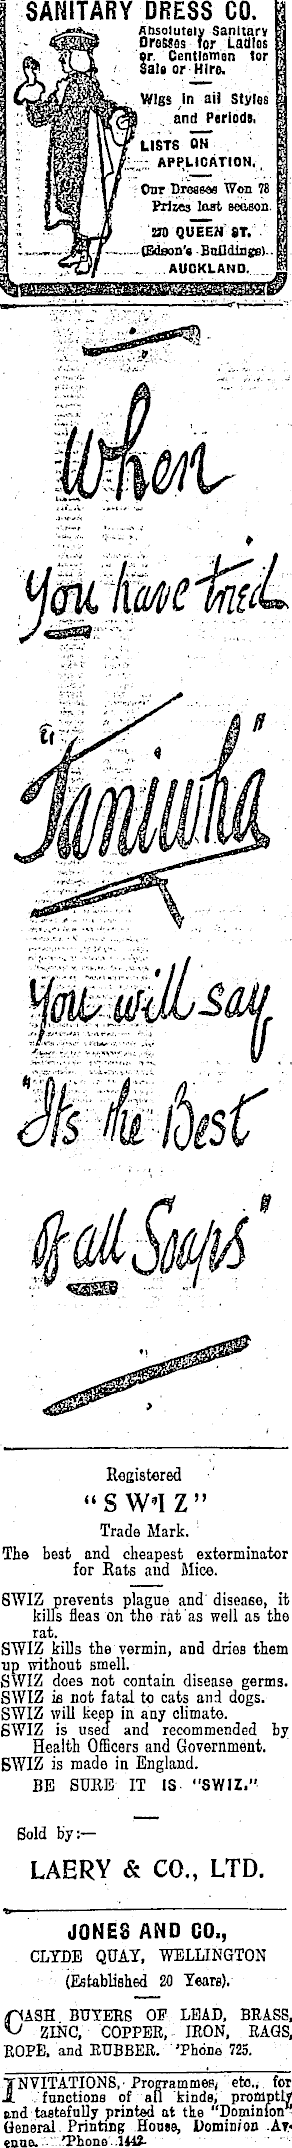 SANITARY DRESS CO.
Absolutely Sanitary
Dresses for Ladies
or Gentlemen for
Sale or Hire.
Wigs in all Styles
and Periods.
LISTS ON
APPLICATION.
Our Dresses Won 78
Prizes last season.
270 QUEEN ST.
(Edson's Buildings).
AUCKLAND.
When
you have tried
"Taniwha"
You will say
"Its the Best
of all Soaps"
Registered
"SWIZ"
Trade Mark.
The best and cheapest exterminator
for Rats and Mice.
SWIZ prevents plague and disease, it
kills fleas on the rat as well as the
rat.
SWIZ kills the vermin, and dries them
up without smell.
SWIZ does not contain disease germs.
SWIZ is not fatal to cats and dogs.
SWIZ will keep in any climate.
SWIZ is used and recommended by
Health Officers and Government.
SWIZ is made in England.
BE SURE IT IS "SWIZ."
Sold by:—
LAERY & CO., LTD.
JONES AND CO.,
CLYDE QUAY, WELLINGTON
(Established 20 Years).
CASH BUYERS OF LEAD, BRASS,
ZINC, COPPER, IRON, RAGS,
ROPE, and RUBBER. 'Phone 725.
INVITATIONS, Programmes, etc., for
functions of all kinds, promptly
and tastefully printed at the "Dominion"
General Printing House, Dominion Av-
enue. 'Phone 1442.